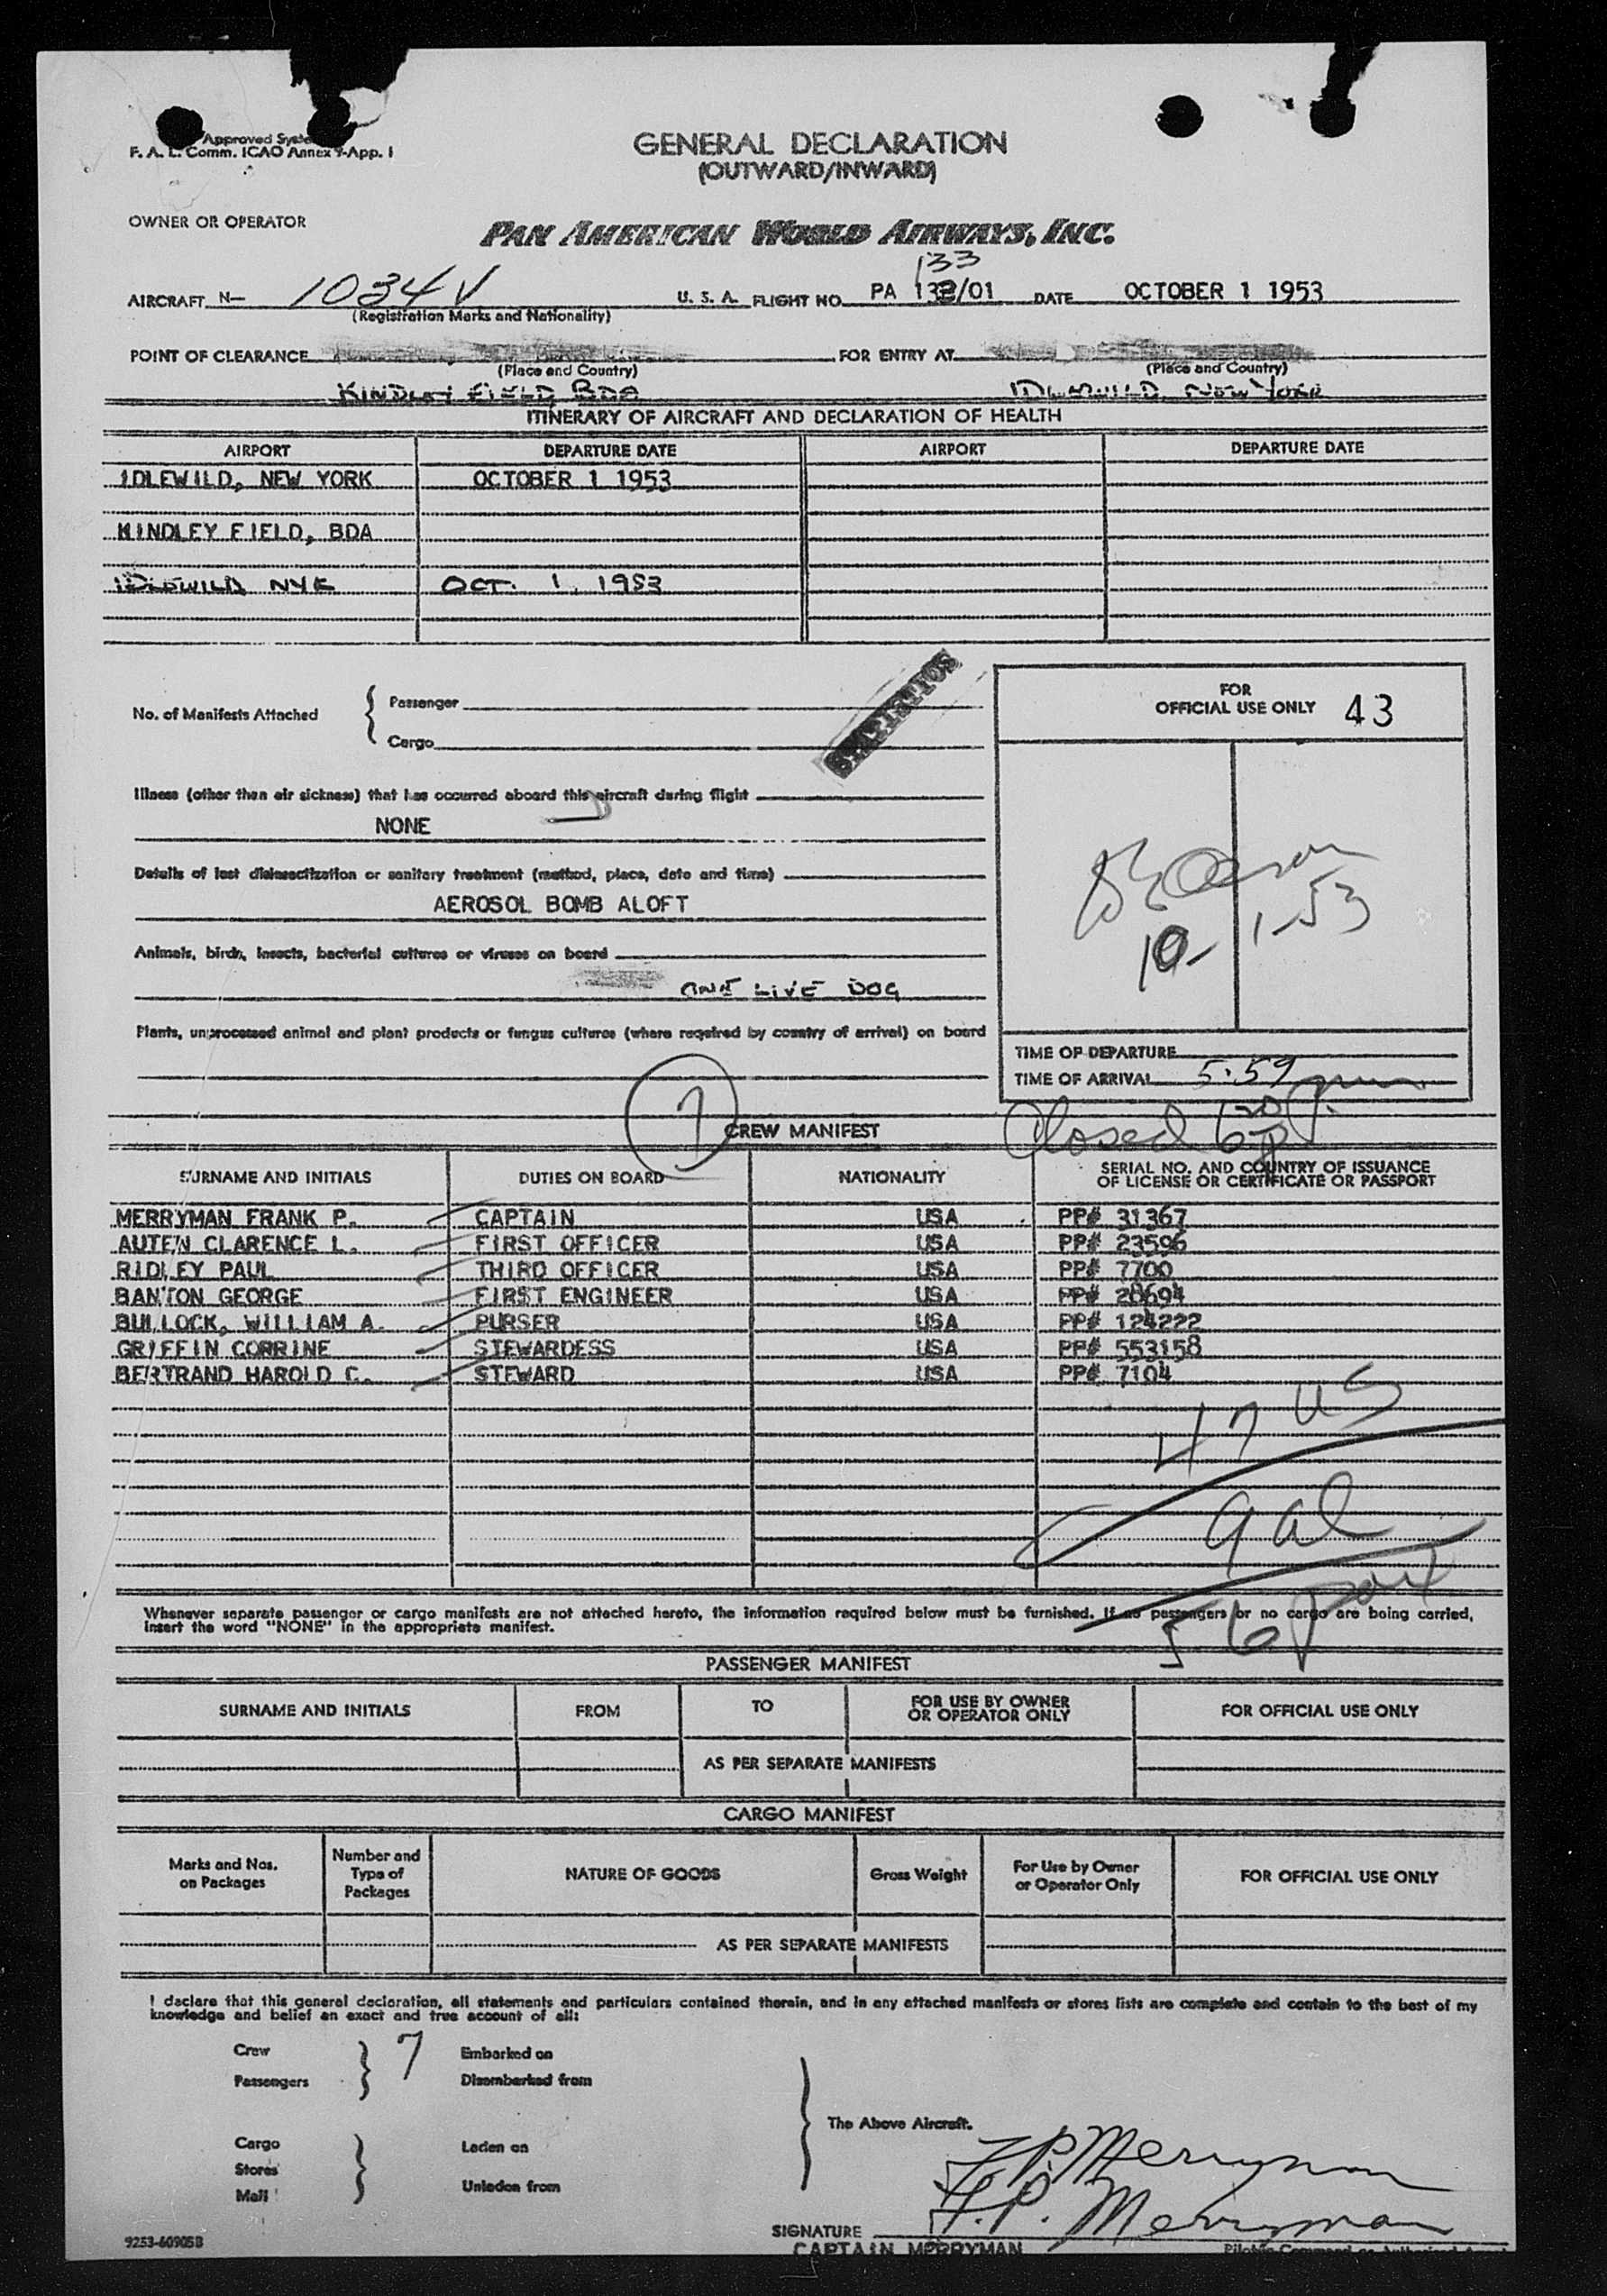 Approved
F. A. L. Comm. ICAO Annex 9-App. 1
GENERAL DECLARATION
(OUTWARD/INWARD)
OWNER OR OPERATOR
PAN AMERICAN WORLD AIRWAYS, INC.
133
AIRCRAFT N- 1034V U. S. A. FLIGHT NO. PA 132/01 DATE OCTOBER 1 1953
(Registration Marks and Nationality)
POINT OF CLEARANCE FOR ENTRY AT
(Place and Country) (Place and Country)
KINDLEY FIELD, BDA IDLEWILD, NEW YORK
ITINERARY OF AIRCRAFT AND DECLARATION OF HEALTH
AIRPORT DEPARTURE DATE AIRPORT DEPARTURE DATE
IDLEWILD, NEW YORK OCTOBER 1 1953
KINDLEY FIELD, BDA
IDLEWILD, NYK OCT. 1, 1953
No. of Manifests Attached { Passenger
Cargo
FOR
OFFICIAL USE ONLY 43
Illness (other than air sickness) that has occurred aboard this aircraft during flight
NONE
Details of last disinsectization or sanitary treatment (method, place, date and time)
AEROSOL BOMB ALOFT
10-1-53
Animals, birds, insects, bacterial cultures or viruses on board
ONE LIVE DOG
Plants, unprocessed animal and plant products or fungus cultures (where required by country of arrival) on board
TIME OF DEPARTURE
TIME OF ARRIVAL 5:59
7
Closed
CREW MANIFEST
SURNAME AND INITIALS DUTIES ON BOARD NATIONALITY SERIAL NO. AND COUNTRY OF ISSUANCE
OF LICENSE OR CERTIFICATE OR PASSPORT
MERRYMAN FRANK P. CAPTAIN USA PP# 31367
AUTEN CLARENCE L. FIRST OFFICER USA PP# 23596
RIDLEY PAUL THIRD OFFICER USA PP# 7700
BANTON GEORGE FIRST ENGINEER USA PP# 28694
BULLOCK, WILLIAM A. PURSER USA PP# 124222
GRIFFIN CORRINE STEWARDESS USA PP# 553158
BERTRAND HAROLD C. STEWARD USA PP# 7104
47 US
9 al
56
Whenever separate passenger or cargo manifests are not attached hereto, the information required below must be furnished. If no passengers or no cargo are being carried,
insert the word "NONE" in the appropriate manifest.
PASSENGER MANIFEST
SURNAME AND INITIALS FROM TO FOR USE BY OWNER
OR OPERATOR ONLY FOR OFFICIAL USE ONLY
AS PER SEPARATE MANIFESTS
CARGO MANIFEST
Marks and Nos.
on Packages Number and
Type of
Packages NATURE OF GOODS Gross Weight For Use by Owner
or Operator Only FOR OFFICIAL USE ONLY
AS PER SEPARATE MANIFESTS
I declare that this general declaration, all statements and particulars contained therein, and in any attached manifests or stores lists are complete and contain to the best of my
knowledge and belief an exact and true account of all:
Crew 7 Embarked on
Passengers Disembarked from
The Above Aircraft.
Cargo Laden on
Stores
Mail Unladen from
F.P. Merryman
F.P. Merryman
SIGNATURE
CAPTAIN MERRYMAN
9253-60905B